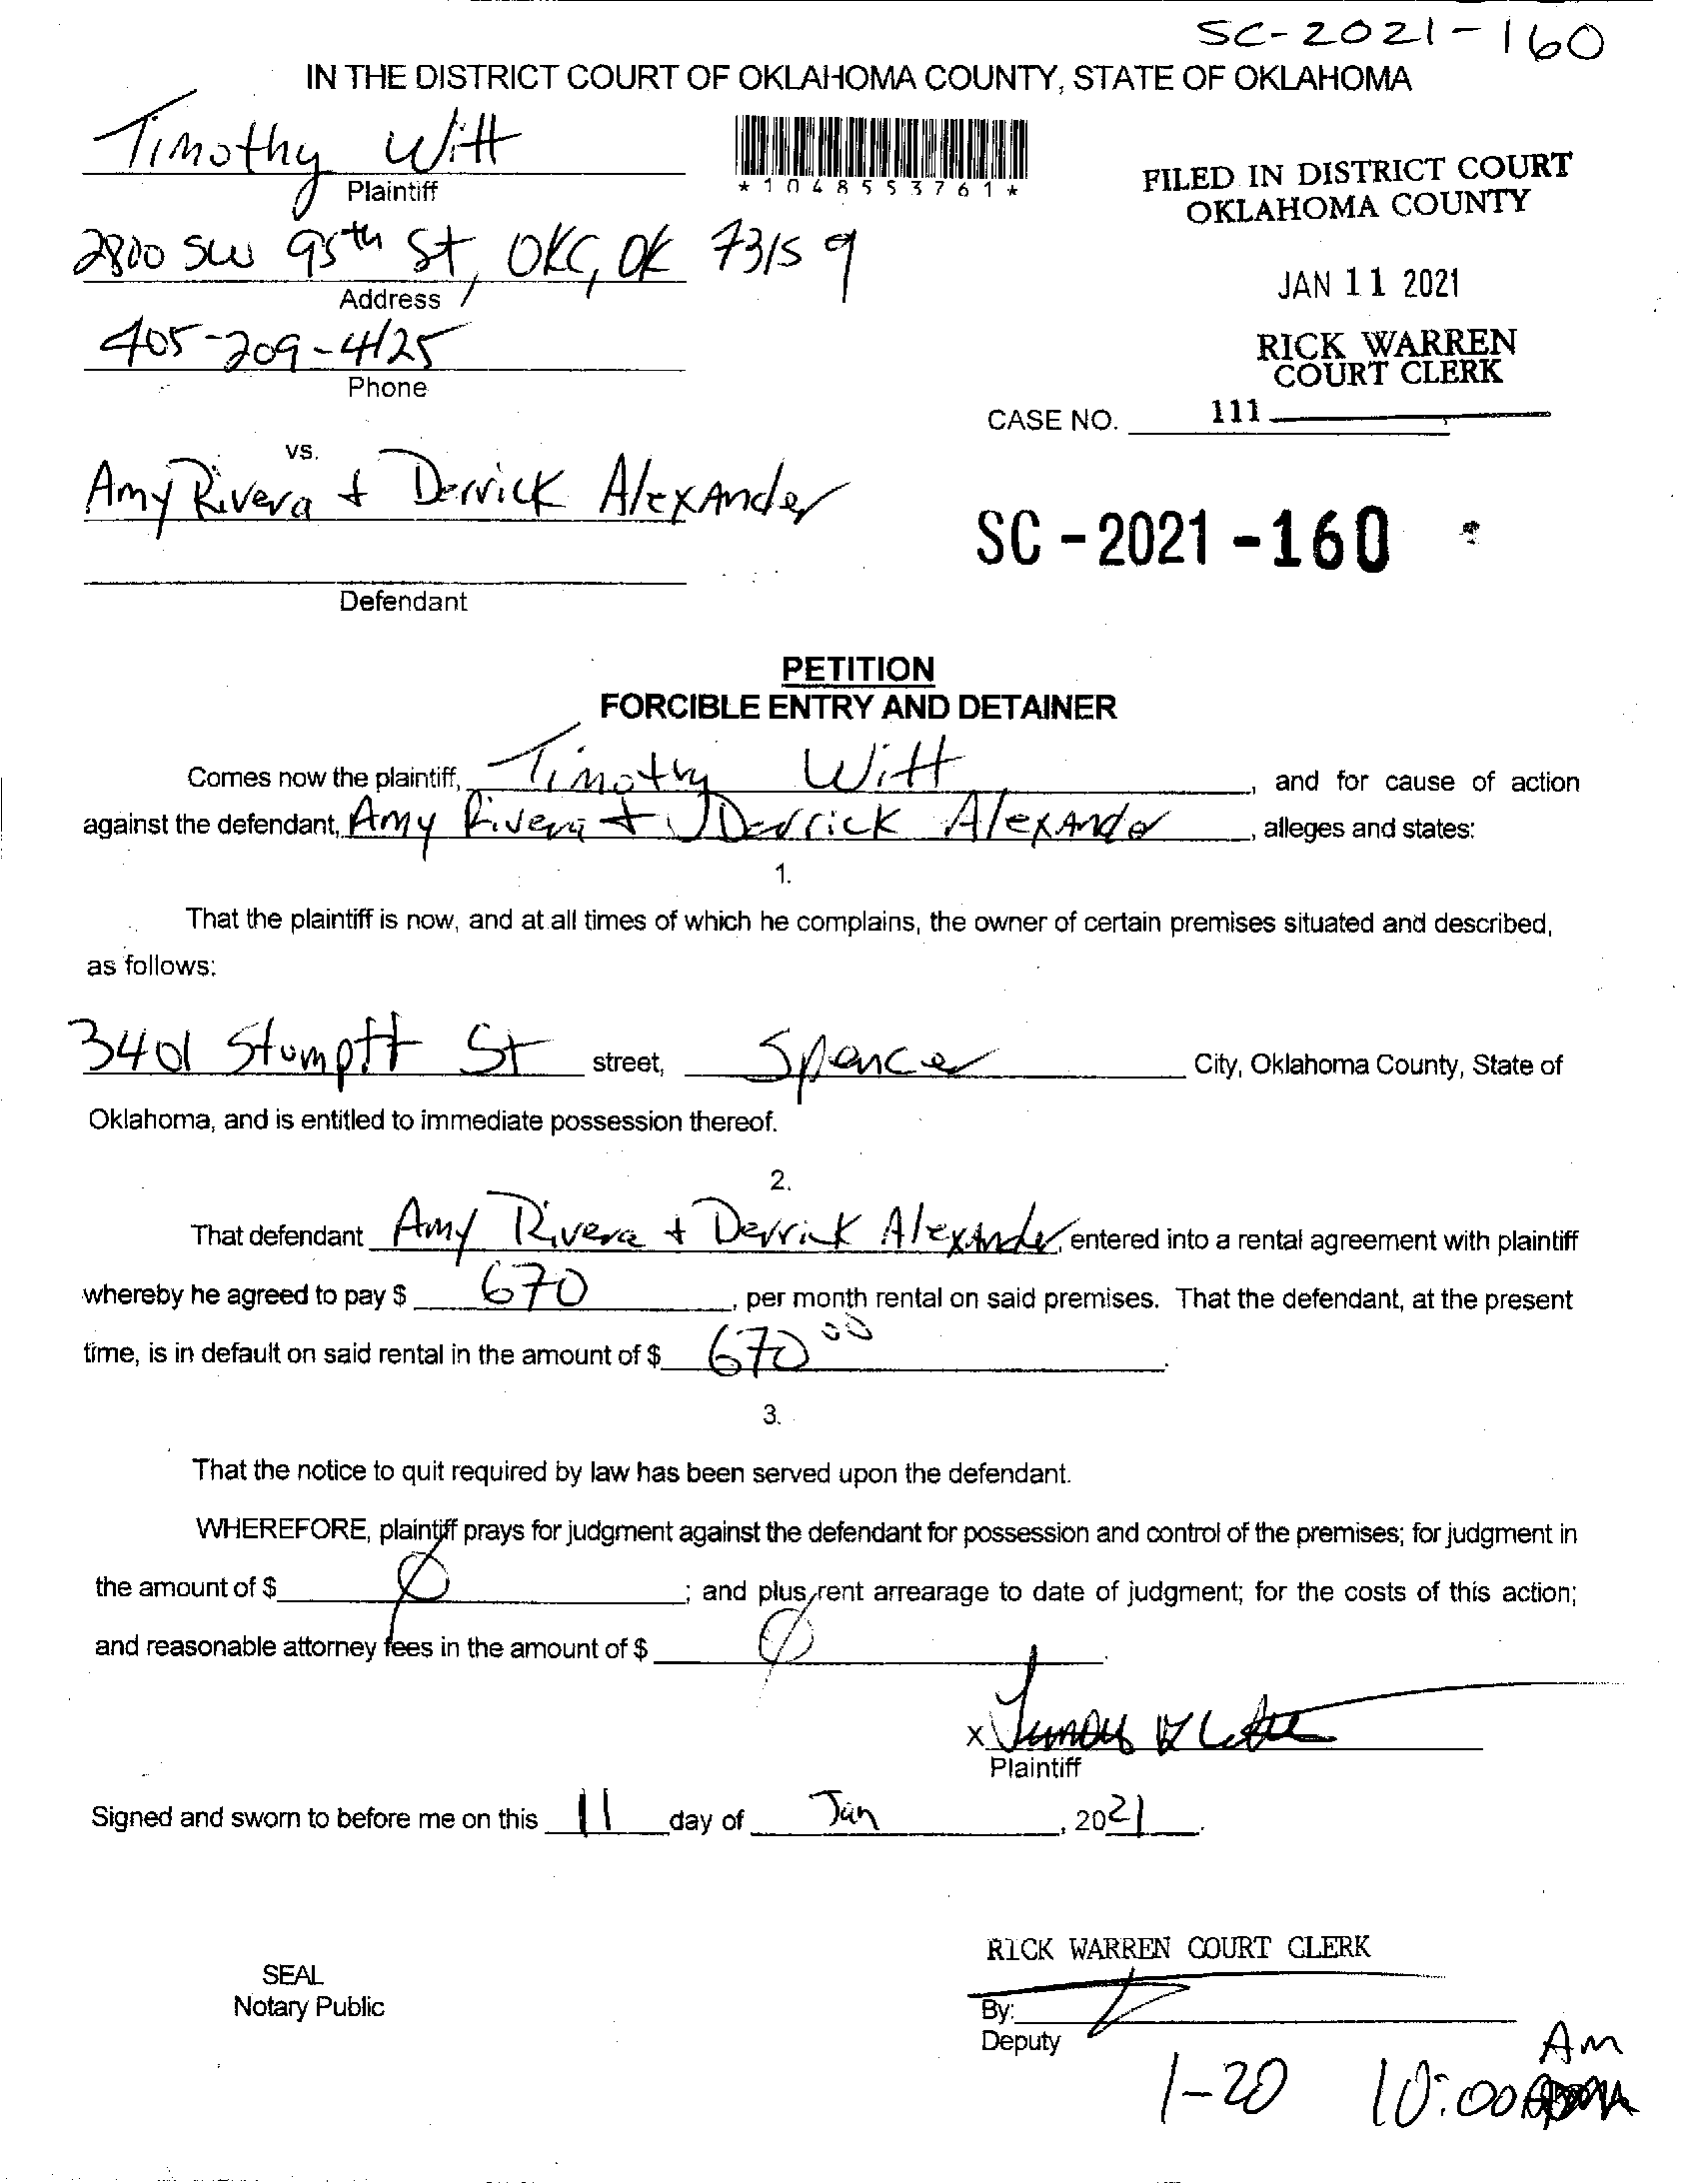 SC-2021-160
IN THE DISTRICT COURT OF OKLAHOMA COUNTY, STATE OF OKLAHOMA
Timothy Witt
Plaintiff
*1048553761*
FILED IN DISTRICT COURT
OKLAHOMA COUNTY
2800 SW 95th St, OKC, OK 73159
Address
JAN 11 2021
405-209-4125
Phone
RICK WARREN
COURT CLERK
CASE NO. 111
vs.
Amy Rivera + Derrick Alexander
SC-2021-160
Defendant
PETITION
FORCIBLE ENTRY AND DETAINER
Comes now the plaintiff, Timothy Witt, and for cause of action
against the defendant, Amy Rivera + Derrick Alexander, alleges and states:
1.
That the plaintiff is now, and at all times of which he complains, the owner of certain premises situated and described,
as follows:
3401 Stumptt St street, Spencer City, Oklahoma County, State of
Oklahoma, and is entitled to immediate possession thereof.
2.
That defendant Amy Rivera + Derrick Alexander, entered into a rental agreement with plaintiff
whereby he agreed to pay $ 670, per month rental on said premises. That the defendant, at the present
time, is in default on said rental in the amount of $ 670 00.
3.
That the notice to quit required by law has been served upon the defendant.
WHEREFORE, plaintiff prays for judgment against the defendant for possession and control of the premises; for judgment in
the amount of $ Ø; and plus rent arrearage to date of judgment; for the costs of this action;
and reasonable attorney fees in the amount of $ Ø.
X
Plaintiff
Signed and sworn to before me on this 11 day of Jan, 2021.
RICK WARREN COURT CLERK
SEAL
Notary Public
By:
Deputy
1-20 10:00 AM